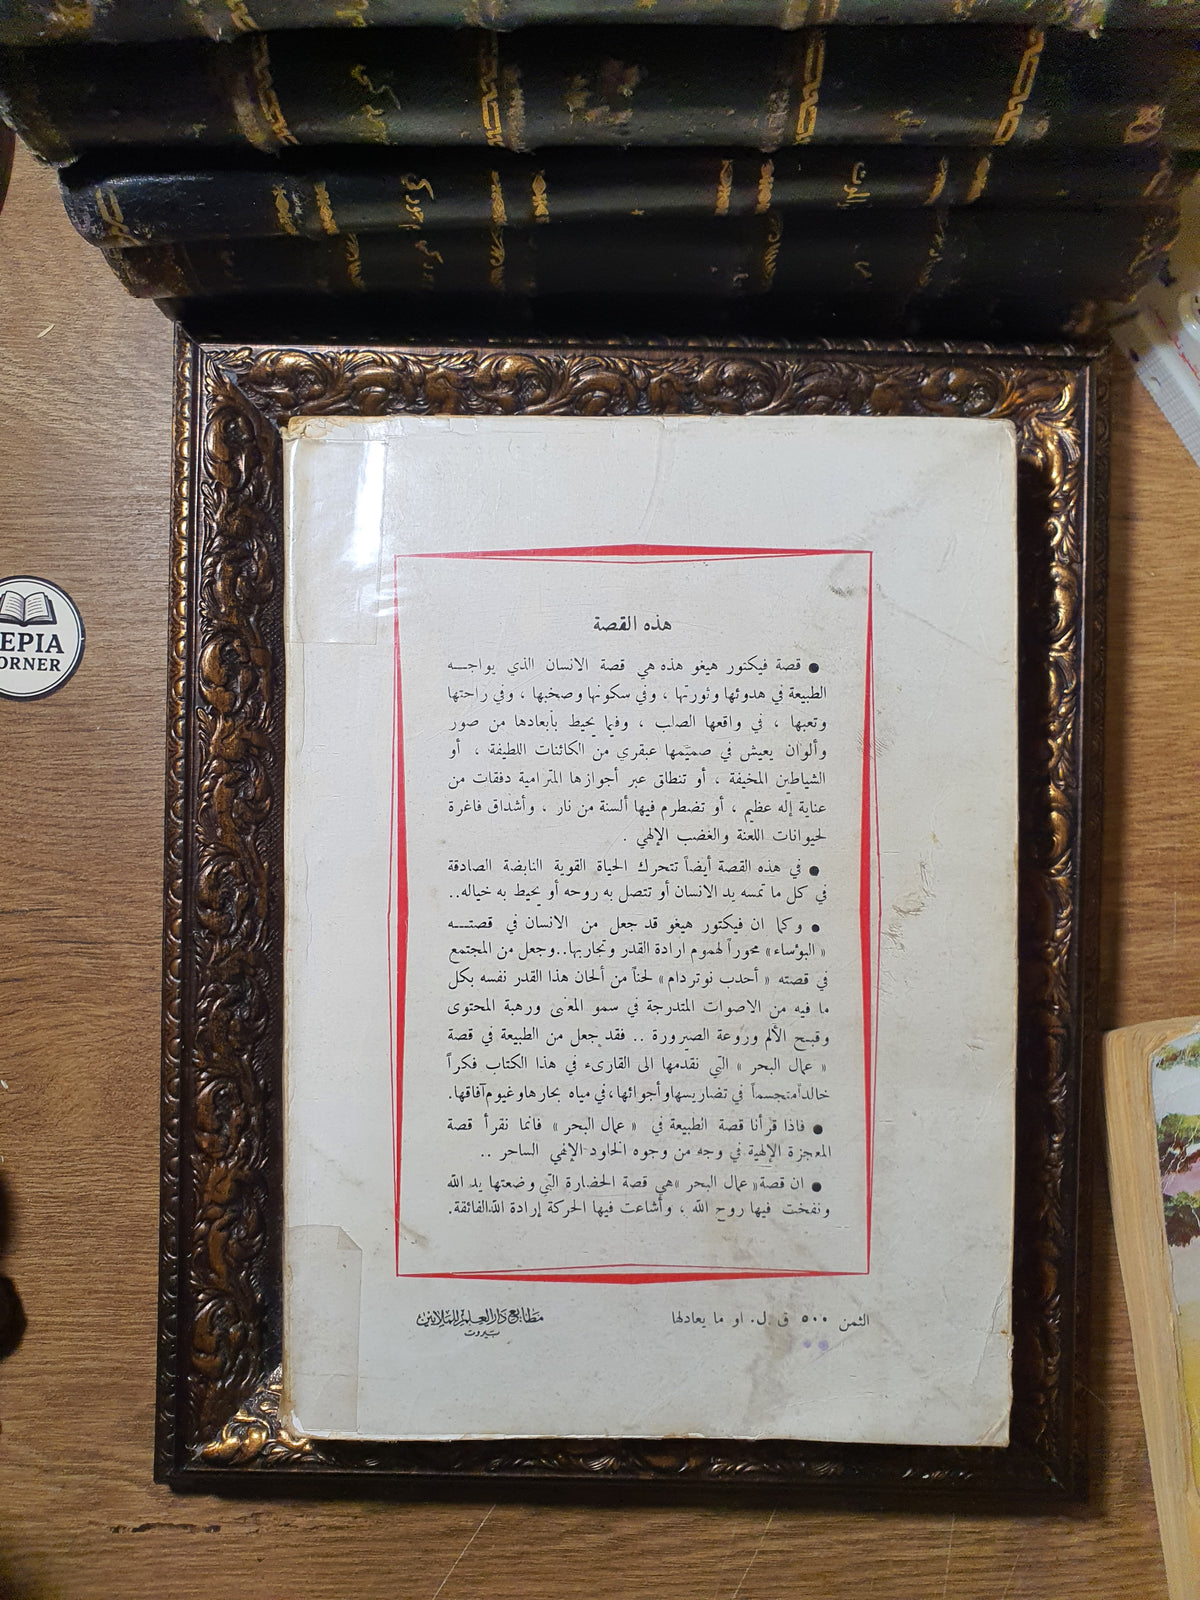 هذه القصة
● قصة فيكتور هيغو هذه هي قصة الانسان الذي يواجـــه
الطبيعة في هدوئها وثورتها ، وفي سكونها وصخبها ، وفي راحتها
وتعبها ، في واقعها الصلب ، وفيما يحيط بأبعادها من صور
وألوان يعيش في صميمها عبقري من الكائنات اللطيفة ، أو
الشياطين المخيفة ، أو تنطلق عبر أجوازها المترامية دفقات من
عناية إله عظيم ، أو تضطرم فيها ألسنة من نار ، وأشداق فاغرة
لحيوانات اللعنة والغضب الإلهي .
● في هذه القصة أيضاً تتحرك الحياة القوية النابضة الصادقة
في كل ما تمسه يد الانسان أو تتصل به روحه أو يحيط به خياله..
● وكما ان فيكتور هيغو قد جعل من الانسان في قصتـــه
« البؤساء» محوراً لهموم ارادة القدر وتجاربها..وجعل من المجتمع
في قصته « أحدب نوتردام» لحناً من ألحان هذا القدر نفسه بكل
ما فيه من الاصوات المتدرجة في سمو المغنى ورهبة المحتوى
وقبح الألم وروعة الصيرورة .. فقد جعل من الطبيعة في قصة
« عمال البحر » التي نقدمها الى القارىء في هذا الكتاب فكراً
خالداً متجسماً في تضاريسها وأجوائها،في مياه بحارها وغيوم آفاقها.
● فاذا قرأنا قصة الطبيعة في « عمال البحر » فانما نقرأ قصة
المعجزة الإلهية في وجه من وجوه الخلود الإلهي الساحر ..
● ان قصة« عمال البحر »هي قصة الحضارة التي وضعتها يد الله
ونفخت فيها روح الله ، وأشاعت فيها الحركة إرادة الله الفائقة.
الثمن ٥٠٠ ق .ل. او ما يعادلها
مطابع دار العلم للملايين
بيروت
EPIA
ORNER